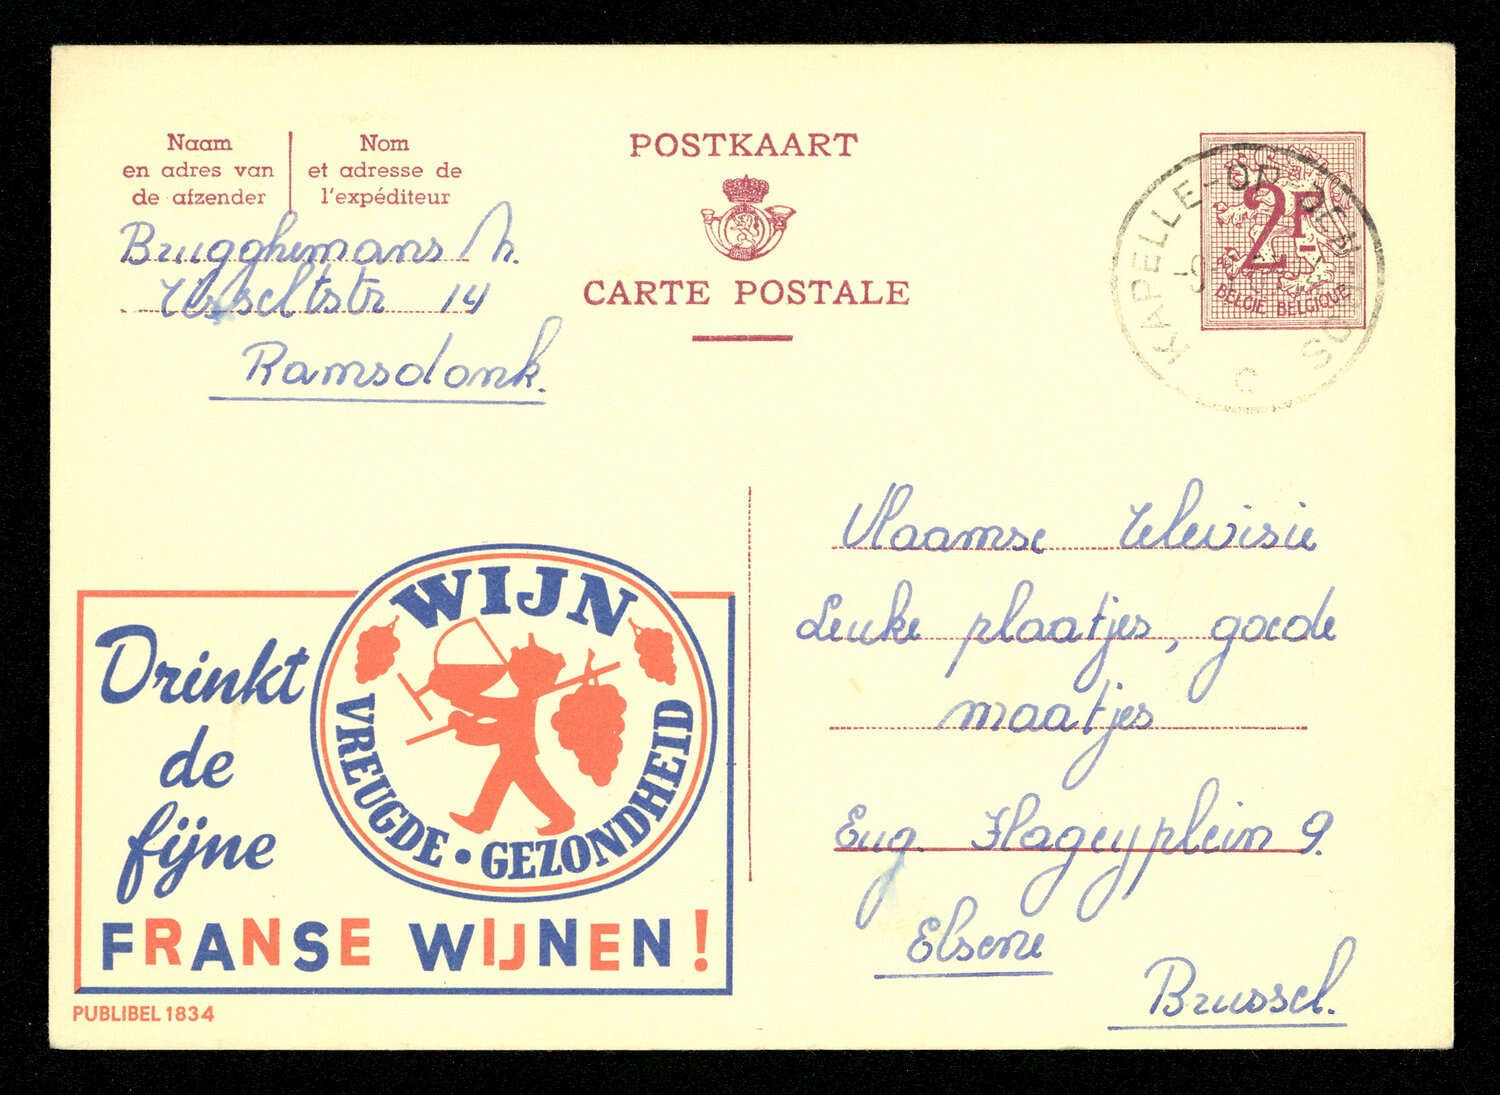 Naam
en adres van
de afzender
Nom
et adresse de
l'expéditeur
Brugghemans M.
14
Ramsdonk.
POSTKAART
CARTE POSTALE
2F
BELGIË BELGIQUE
KAPELLE-OP-DEN-BOS
C
Vlaamse Televisie
Leuke plaatjes, goede
maatjes
Eug. Flageyplein 9.
Elsene
Brussel.
Drinkt
de
fijne
FRANSE WIJNEN!
WIJN
VREUGDE • GEZONDHEID
PUBLIBEL 1834